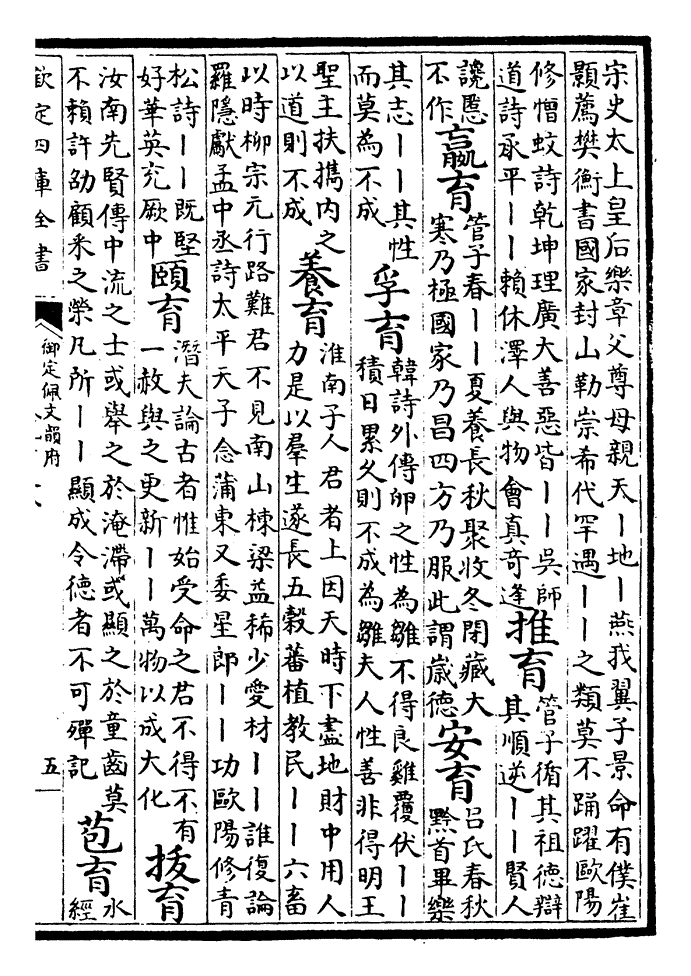 宋史太上皇后樂章父尊母親天丨地丨燕我翼子景命有僕崔
顥薦樊衡書國家封山勒崇希代罕遇丨丨之類莫不踊躍歐陽
修憎蚊詩乾坤理廣大善惡皆丨丨吳師
道詩承平丨丨賴休澤人與物會真奇逢
推育
管子循其祖德辯
其順逆丨丨賢人
讒慝
不作
嬴育
管子春丨丨夏養長秋聚收冬閉藏大
寒乃極國家乃昌四方乃服此謂歲德
安育
呂氏春秋
黔首畢樂
其志丨丨其性
而莫為不成
孚育
韓詩外傳卵之性為雛不得良雞覆伏丨丨
積日累久則不成為雛夫人性善非得明王
聖主扶攜内之
以道則不成
養育
淮南子人君者上因天時下盡地財中用人
力是以羣生遂長五穀蕃植教民丨丨六畜
以時柳宗元行路難君不見南山棟梁益稀少愛材丨丨誰復論
羅隱獻孟中丞詩太平天子念蒲東又委星郎丨丨功歐陽修青
松詩丨丨既堅
好華英充厥中
頤育
潛夫論古者惟始受命之君不得不有
一赦與之更新丨丨萬物以成大化
拔育
汝南先賢傳中流之士或舉之於淹滯或顯之於童齒莫
不賴許劭顧采之榮凡所丨丨顯成令德者不可殫記
苞育
水
經
欽定四庫全書
御定佩文韻府
五